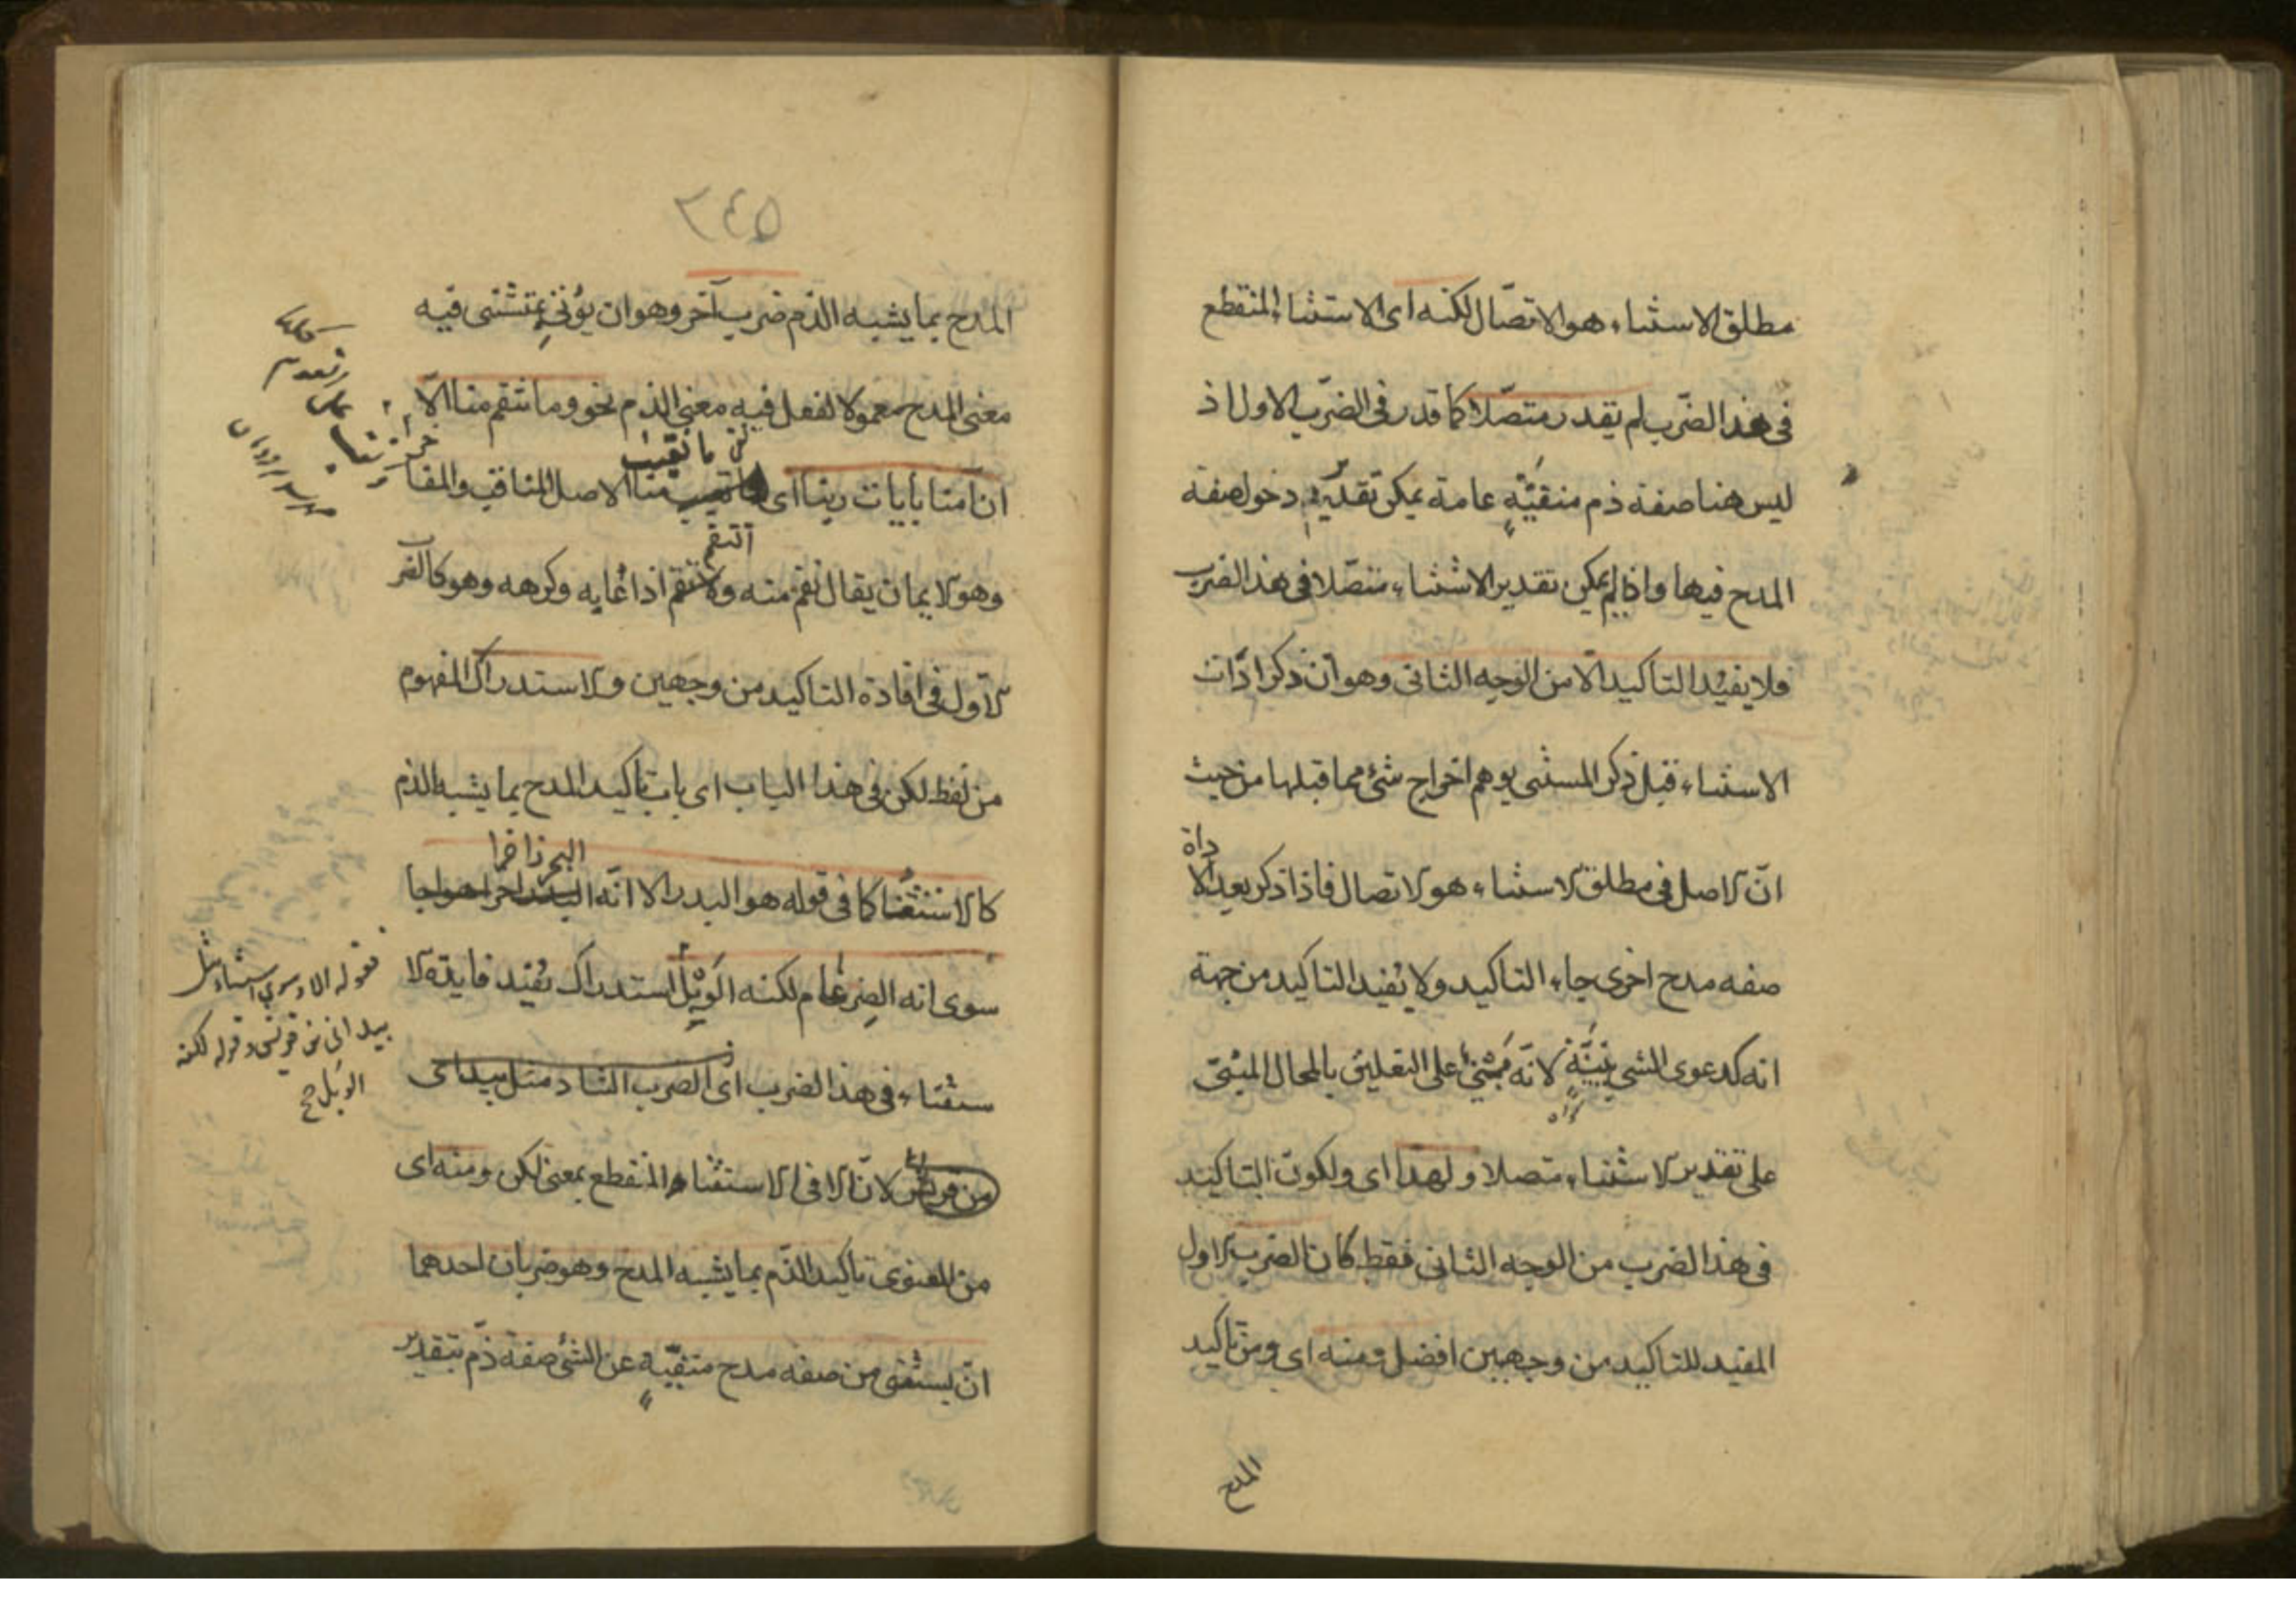 مطلق الاستثناء هو الاتصال لكنه اى الاستثناء المنقطع
فى هذا الضرب لم يقدر متصلا كما قدر فى الضرب الاول اذ
ليس هنا صفة ذم منفية عامة يمكن تقدير دخول صفة
المدح فيها واذا لم يمكن تقدير الاستثناء متصلا فى هذا الضرب
فلا يفيد التاكيد الا من الوجه الثانى وهو ان ذكر اداة
الاستثناء قبل ذكر المستثنى يوهم اخراج شئ مما قبلها من حيث
انّ الاصل فى مطلق الاستثناء هو الاتصال فاذا ذكر بعد اداة
صفه مدح اخرى جاء التاكيد ولا يفيد التاكيد من جهة
انه كدعوى الشى ببيّنة لانّه مبنى على التعليق بالمحال المبنى
على تقدير الاستثناء متصلا ولهذا اى ولكون التاكيد
فى هذا الضرب من الوجه الثانى فقط كان الضرب الاول
المفيد للتاكيد من وجهين افضل ومنه اى ومن تاكيد
المدح
٣٤٥
المدح بما يشبه الذم ضرب آخر وهو ان يؤتى بمستثنى فيه
معنى المدح معمولا لفعل فيه معنى الذم نحو وما تنقم منا الّا
ما تعيب
ان امنا بايات ربنا اى منا الا اصل المناقب والمفا
انتقم
وهو الايمان يقال نقم منه و اذا عابه وكرهه وهو كالضرب
الاول فى افادة التاكيد من وجهين والاستدراك المفهوم
من لفظ لكن فى هذا الباب اى باب تاكيد المدح بما يشبه الذم
البحر زاخرا
كالاستثناء كما فى قوله هو البدر الا انّه
سوى انه الضرغام لكنه الوبل استدراك يفيد فايدة الا
ستثناء فى هذا الضرب اى الضرب الثا د مثل بيد انى
من قريش لان الا فى الاستثناء المنقطع بمعنى لكن ومنه اى
من المعنوى تاكيد الذّم بما يشبه المدح وهو ضربان احدهما
ان يستثنى من صفه مدح منفيّة عن الشئ صفة ذمّ بتقدير
فقوله الا وسوى استثناء مثل
بيد انى من قريش وقوله لكنه
الوبل